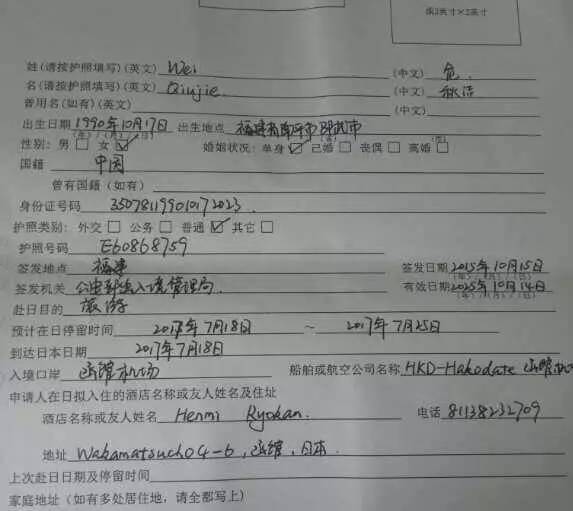 或2英寸×2英寸
姓(请按护照填写)(英文) Wei (中文) 危
名(请按护照填写)(英文) Qiujie (中文) 秋洁
曾用名(如有)(英文) (中文)
出生日期 1990年10月17日 出生地点 福建省南平市邵武市
(年)/(月)/(日) (市)
性别：男 □ 女 ☑ 婚姻状况：单身 ☑ 已婚 □ 丧偶 □ 离婚 □
国籍 中国
曾有国籍（如有）
身份证号码 350781199010172023
护照类别：外交 □ 公务 □ 普通 ☑ 其它 □
护照号码 E60868759
签发地点 福建 签发日期 2015年10月15日
(年)/(月)/(日)
签发机关 公安部出入境管理局 有效日期 2025年10月14日
(年)/(月)/(日)
赴日目的 旅游
预计在日停留时间 2017年7月18日 ～ 2017年7月25日
到达日本日期 2017年7月18日
入境口岸 函馆机场 船舶或航空公司名称 HKD-Hakodate 函馆机
申请人在日拟入住的酒店名称或友人姓名及住址
酒店名称或友人姓名 Henmi Ryokan. 电话 81138232709
地址 Wakamatsucho 4-6, 函馆, 日本.
上次赴日日期及停留时间
家庭地址（如有多处居住地，请全都写上）